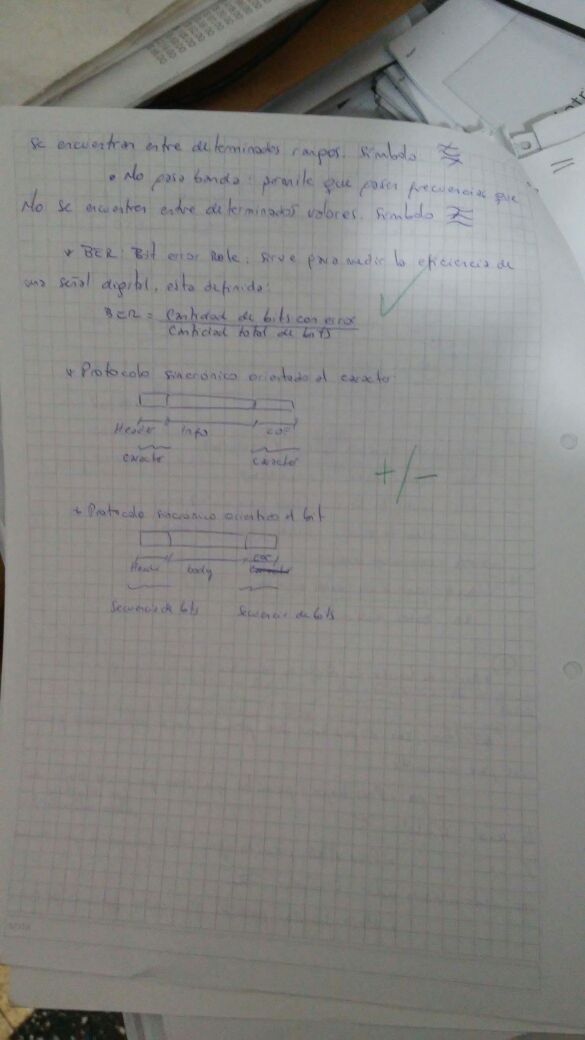 se encuentran entre determinados rangos. Simbolo
• No pasa banda: permite que pasen frecuencias que
No se encuentren entre determinados valores. Simbolo
* BER: Bit error Rate: Sirve para medir la eficiencia de
una señal digital, esta definida:
BER = Cantidad de bits con error
Cantidad total de bits
* Protocolo sincrónico orientado al caracter
Header Info
caracter caracter
+/-
* Protocolo sincronico orientado al bit
Header body
Secuencia de bits Secuencia de bits